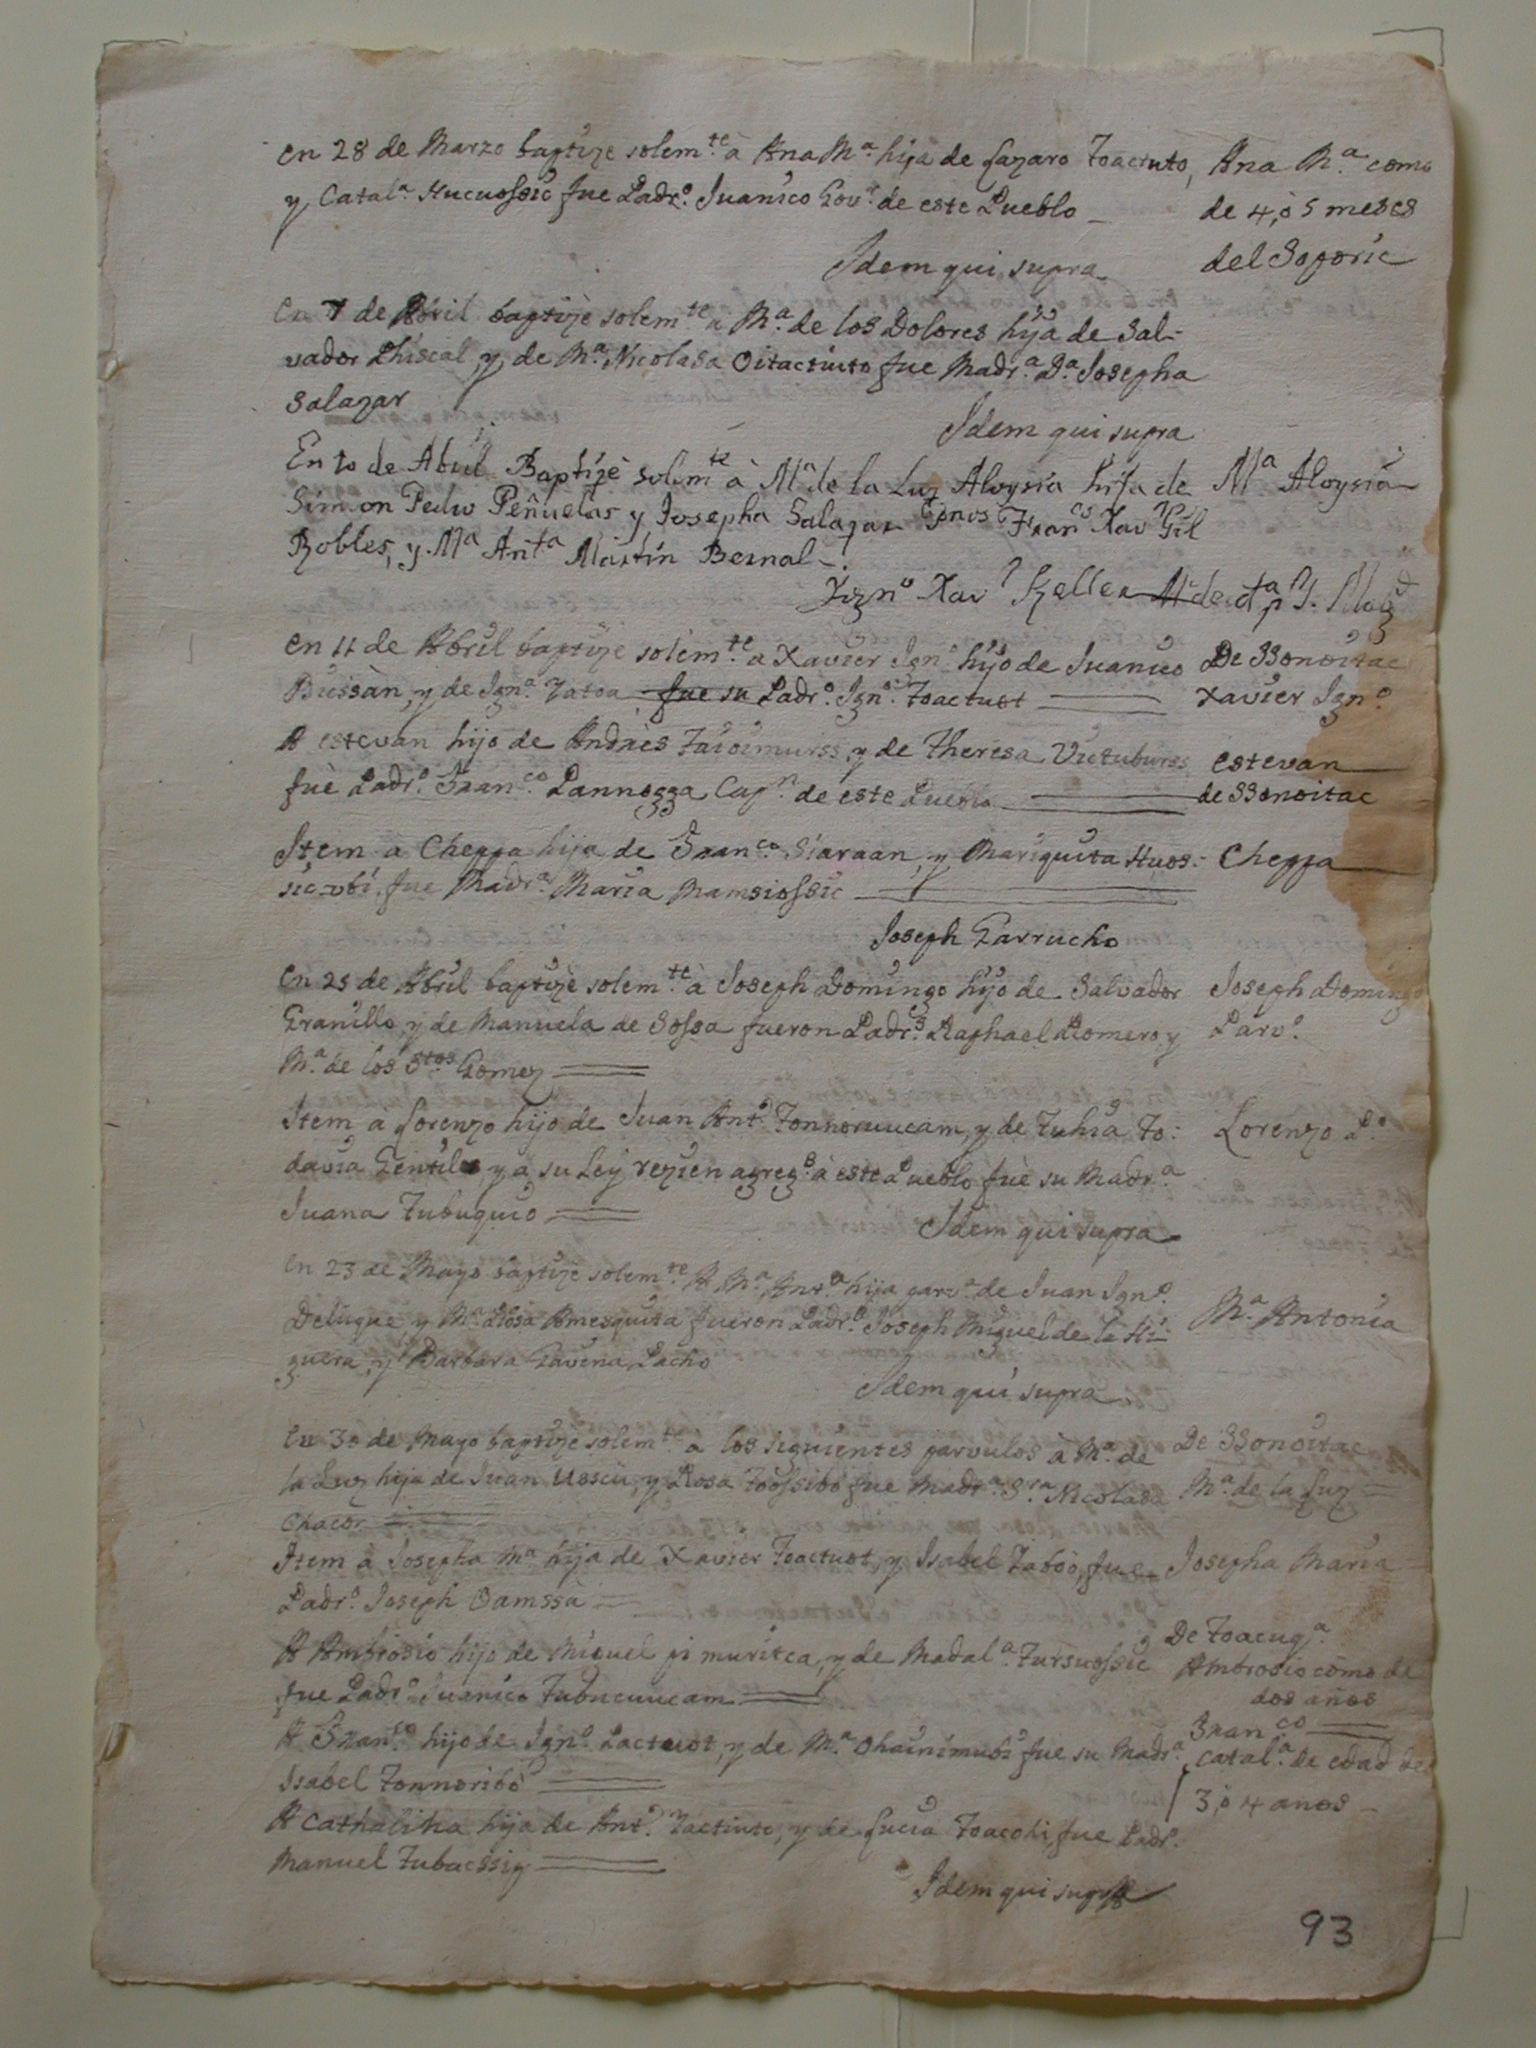 en 28 de Marzo baptize solem.te à Ana M.a hija de Lazaro Toactuto,
y Catal.a Hucuossic fue Padr.o Juanico Gov.r de este Pueblo
Ana M.a como
de 4, ò 5 meses
del Soporic
Idem qui supra
En 7 de Abril baptizè solem.te a M.a de los Dolores hija de Sal-
vador Phiscal, y de M.a Nicolasa Oitactuto fue Madr.a D.a Josepha
Salazar
Idem qui supra
En 10 de Abril Baptizè solem.te à M.a de la Luz Aloysia hija de
Simon Pedro Peñuelas y Josepha Salazar Fran.co Xav.r Gil
Robles, y M.a Ant.a Martin Bernal
M.a Aloysia
Ign.o Xav.r Keller
en 11 de Abril baptize solem.te a Xavier Ign.o hijo de Juanico
Bussàn, y de Ign.a Tatoa fue su Padr.o Ign.o Toactuot
De SSonoitac
Xavier Ign.o
A estevan hijo de Andrès Taioimurss, y de Theresa Victuburss
fuè Padr.o Fran.co Pannozza Cap.n de este Pueblo
estevan
de SSonoitac
Item a Cheppa hija de Fran.co Siaraan, y Mariquita Huos-
sic-ubi fue Madr.a Maria Mamsiossic
Cheppa
Joseph Garrucho
en 25 de Abril baptizè solem.te à Joseph Domingo hijo de Salvador
Granillo, y de Manuela de Sossa fueron Padr.s Raphael Romero, y
M.a de los S.tos Gomez
Joseph Domingo
Parv.o
Item à Lorenzo hijo de Juan Ant.o Tonnoruucam, y de Tuhia To-
davia Gentiles, y a su Ley rezien agreg.s à este Pueblo fuè su Madr.a
Juana Tubuquio
Lorenzo P.o
Idem qui supra
en 23 de Mayo baptize solem.te A M.a Ant.a hija parv.a de Juan Ign.o
Deluque, y M.a Rosa Amesquita fueron Padr.s Joseph Miguel de la Hi-
guera, y Barbara Gavina Pacho
M.a Antonia
Idem qui supra
En 30 de Mayo baptize solem.te à los siguientes parvulos à M.a de
la Luz hija de Juan Uosciu, y Rosa Toossibo fue Madr.a S.ra Nicolasa
Chacor
De SSonoitac
M.a de la Luz
Item a Josepha M.a hija de Xavier Toactuot, y Isabel Taboo, fue
Padr.o Joseph Oamssà
Josepha Maria
A Ambrosio hijo de Miguel pi muritca, y de Madal.a Tursuossic
fue Padr.o Juanico Tubucuucam
De Toacuq.a
Ambrosio como de
dos años
A Fran.co hijo de Ign.o Pactuot, y de M.a Ohainimubi fue su Madr.a
Isabel Tonnoribo
Fran.co
A Cathalina hija de Ant.o Tactiuto, y de Lucia Toacohi, fue Padr.o
Manuel Tubacssig
Catal.a de edad de
3, ò 4 años
Idem qui supra
93